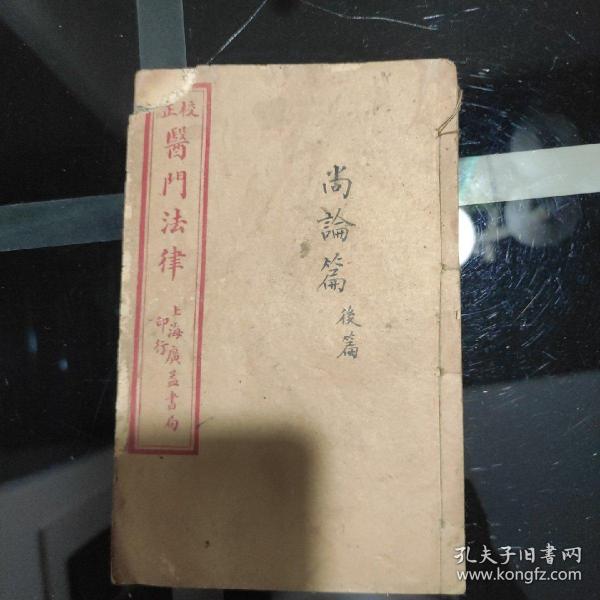 校正
醫門法律
上海廣益書局
印行
尚論篇
後篇
孔夫子旧書网
www.kongfz.com